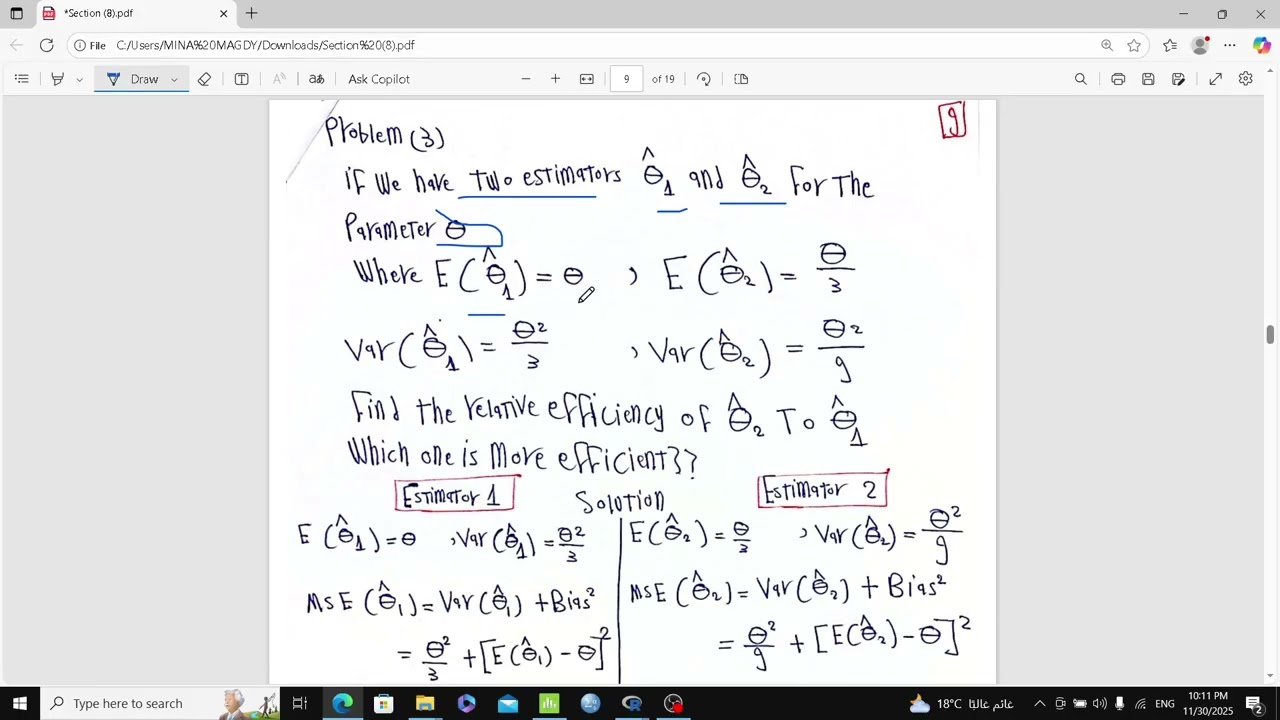 *Section (8).pdf
File C:/Users/MINA%20MAGDY/Downloads/Section%20(8).pdf
Draw Ask Copilot 9 of 19
Problem (3)
9
if we have two estimators θ̂₁ and θ̂₂ For the
Parameter θ
Where E(θ̂₁) = θ , E(θ̂₂) = θ/3
Var(θ̂₁) = θ²/3 , Var(θ̂₂) = θ²/9
Find the relative efficiency of θ̂₂ To θ̂₁
Which one is more efficient??
Estimator 1 Solution Estimator 2
E(θ̂₁) = θ , Var(θ̂₁) = θ²/3
MSE(θ̂₁) = Var(θ̂₁) + Bias²
= θ²/3 + [E(θ̂₁) - θ]²
E(θ̂₂) = θ/3 , Var(θ̂₂) = θ²/9
MSE(θ̂₂) = Var(θ̂₂) + Bias²
= θ²/9 + [E(θ̂₂) - θ]²
Type here to search
18°C غائم غالبًا
ENG
10:11 PM
11/30/2025
2